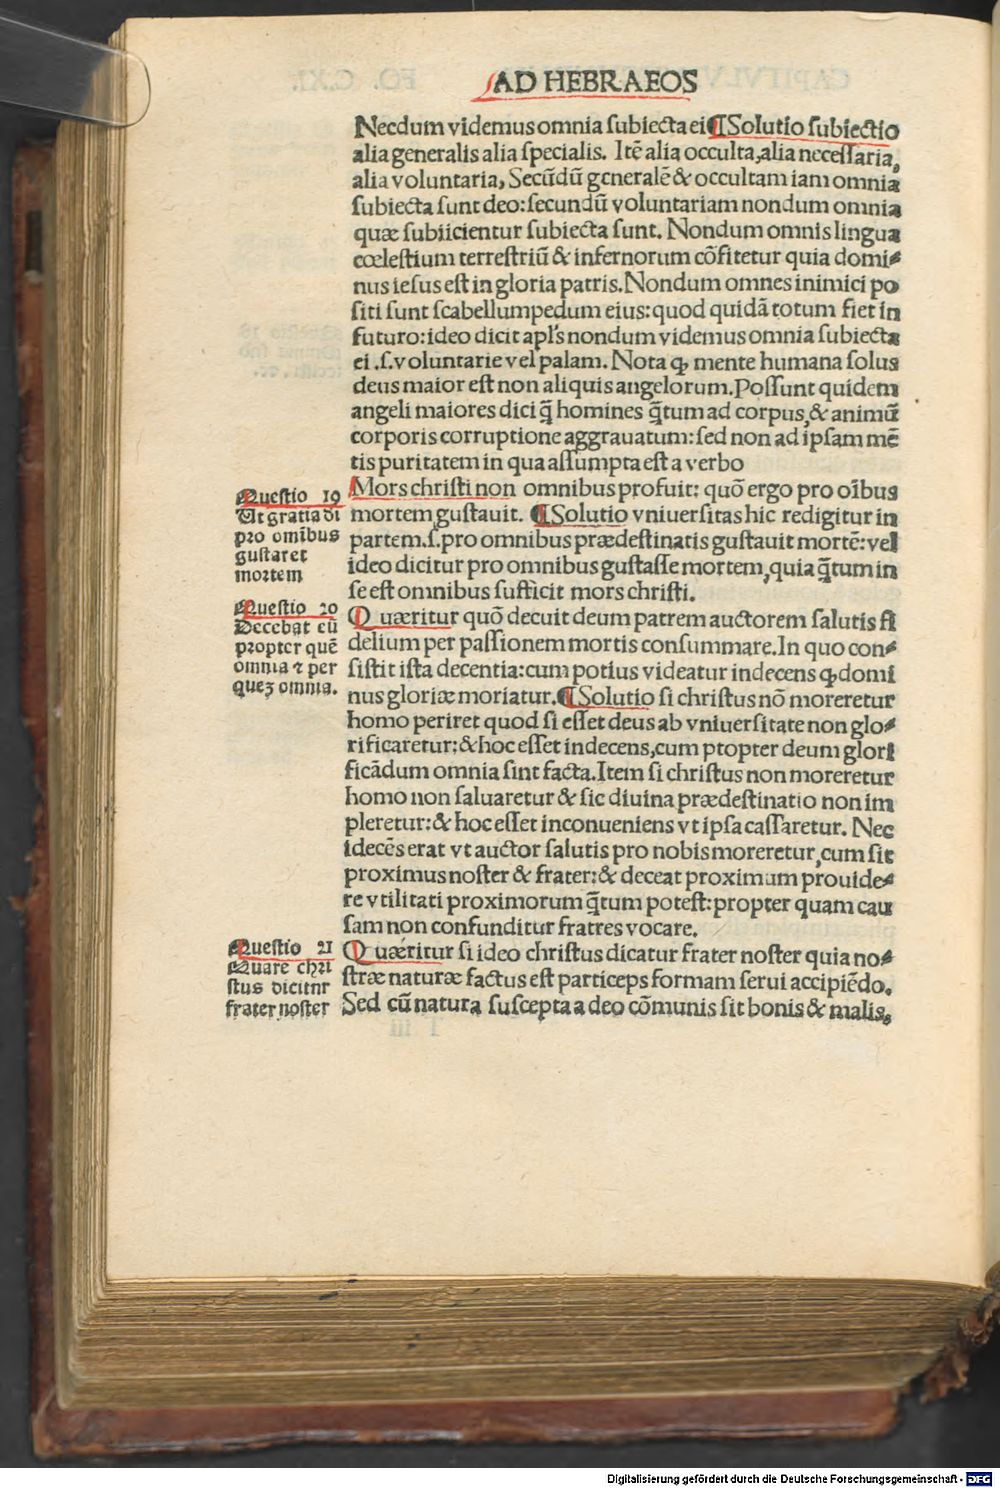 AD HEBRAEOS
Necdum videmus omnia ſubiecta ei¶Solutio ſubiectio
alia generalis alia ſpecialis. Itē alia occulta,alia neceſſaria,
alia voluntaria, Secūdū generalē & occultam iam omnia
ſubiecta ſunt deo:ſecundū voluntariam nondum omnia
quæ ſubiicientur ſubiecta ſunt. Nondum omnis lingua
cœleſtium terreſtriū & infernorum cōfitetur quia domi⸗
nus ieſus eſt in gloria patris. Nondum omnes inimici po
ſiti ſunt ſcabellumpedum eius:quod quidā totum fiet in
futuro:ideo dicit apl's nondum videmus omnia ſubiecta
ei .ſ.voluntarie vel palam. Nota ꝙ mente humana ſolus
deus maior eſt non aliquis angelorum. Poſſunt quidem
angeli maiores dici q̄ homines q̄tum ad corpus,& animū
corporis corruptione aggrauatum:ſed non ad ipſam mē
tis puritatem in qua aſſumpta eſt a verbo
Mors chriſti non omnibus profuit: quō ergo pro oībus
mortem guſtauit. ¶Solutio vniuerſitas hic redigitur in
partem.ſ.pro omnibus prædeſtinatis guſtauit mortē:vel
ideo dicitur pro omnibus guſtaſſe mortem,quia q̄tum in
ſe eſt omnibus ſufficit mors chriſti.
Queſtio 19
Ut gratia di
pro omībus
guſtaret
mortem
Quæritur quō decuit deum patrem auctorem ſalutis fi
delium per paſſionem mortis conſummare. In quo con⸗
ſiſtit iſta decentia:cum potius videatur indecens ꝙ domi
nus gloriæ moriatur.¶Solutio ſi chriſtus nō moreretur
homo periret quod ſi eſſet deus ab vniuerſitate non glo⸗
rificaretur:& hoc eſſet indecens,cum ptopter deum glori
ficādum omnia ſint facta. Item ſi chriſtus non moreretur
homo non ſaluaretur & ſic diuina prædeſtinatio non im
pleretur:& hoc eſſet inconueniens vt ipſa caſſaretur. Nec
idecēs erat vt auctor ſalutis pro nobis moreretur,cum ſit
proximus noſter & frater:& deceat proximum prouide⸗
re vtilitati proximorum q̄tum poteſt:propter quam cau
ſam non confunditur fratres vocare.
Queſtio 20
Decebat eū
propter quē
omnia ⁊ per
queʒ omnia.
Quæritur ſi ideo chriſtus dicatur frater noſter quia no⸗
ſtræ naturæ factus eſt particeps formam ſerui accipiēdo.
Sed cū natura ſuſcepta a deo cōmunis ſit bonis & malis,
Queſtio 21
Quare chri
ſtus dicitur
frater noſter
Digitalisierung gefördert durch die Deutsche Forschungsgemeinschaft - DFG